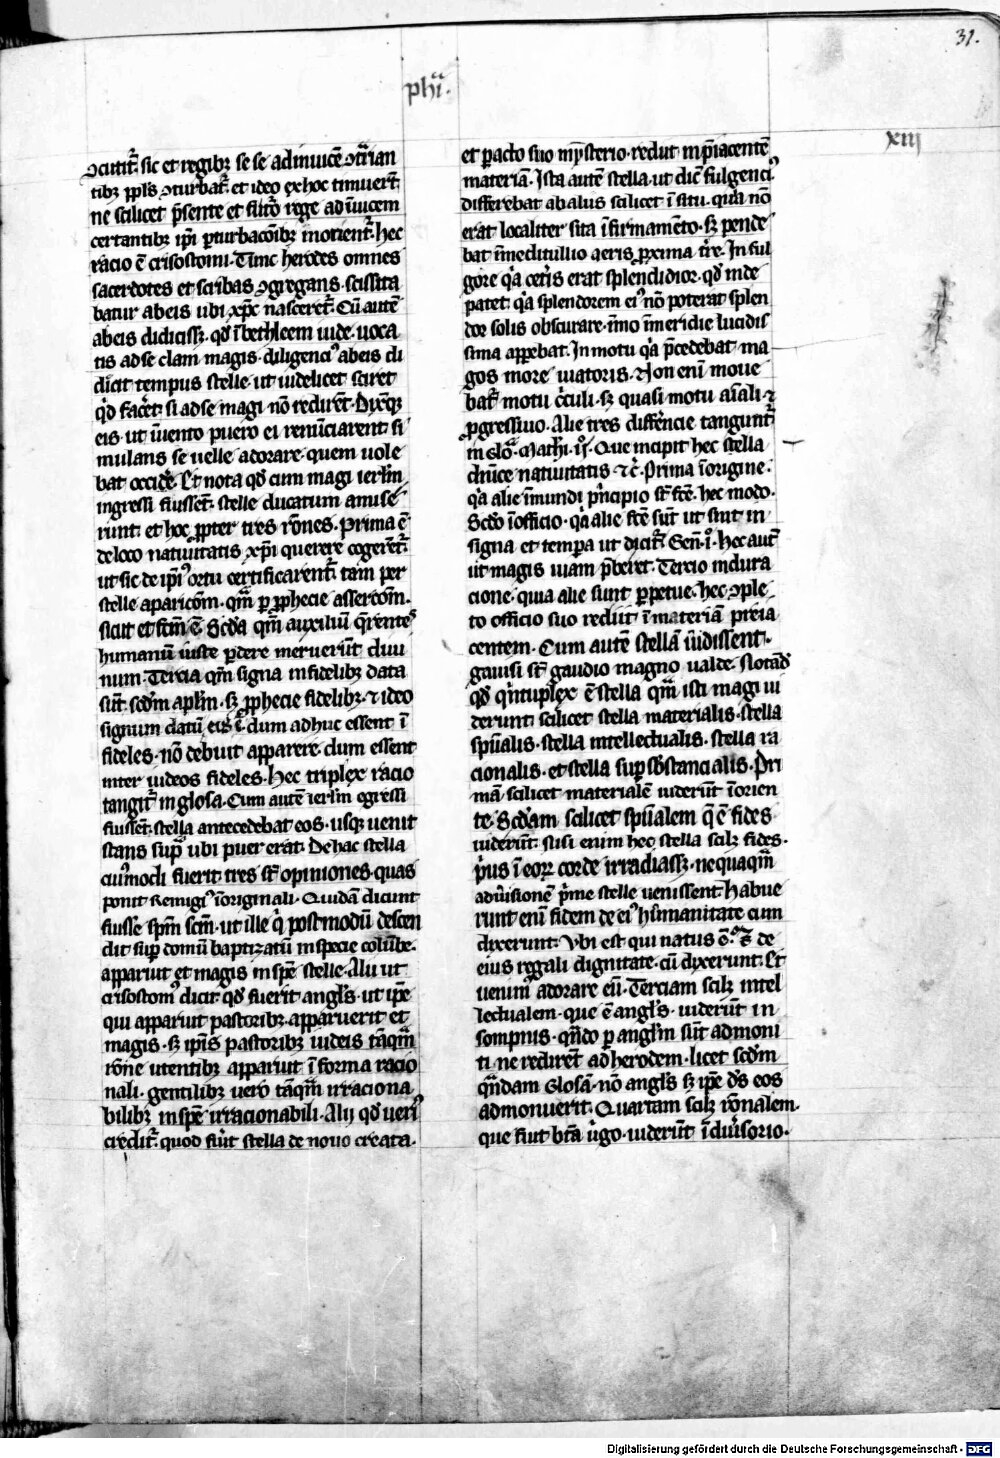 31.
phī.
xiij
ꝯcutit᷑. sic et regibꝫ se se adinuicē ꝯt᷑rian
tibꝫ ppl̄s ꝯturbat᷑. et ideo ex hoc timuer̄t
ne scilicet p̄sente et fut̄o rege ad īuicem
certantibꝫ ip̄i ꝑturbacōibꝫ morient᷑. hec
racio ē crisostomi. Tūnc herodes omnes
sacerdotes et scribas ꝯgregans. scissita
batur ab eis ubi xp̄c nasceret᷑. Cū autē
ab eis didicissꝫ. qd̄ ī bethleem iude. uoca
tis ad se clam magis. diligencꝰ ab eis di
dicit tempus stelle. ut uidelicet sciret
qͥd fac̄et si ad se magi nō redir̄et. Dixitqꝫ
eis. ut īuento puero ei renūciarent si
mulans se uelle adorare. quem uole
bat occid̄e. Et nota qd̄ cum magi ierl̄m
ingressi fuissent. stelle ducatum amise
runt. et hoc ꝓpter tres rōnes. Prima ē
de loco natiuitatis xp̄i querere cogerēt᷑.
ut sic de ip̄iꝰ ortu certificarent᷑. tam per
stelle aparicōm. qm̄ ꝑ ꝓphecie assercōm.
sicut et fc̄m ē. Scd̄a qm̄ auxiliū q̄rentes
humanū iuste ꝑdere meruerūt diui
num. Tercia qm̄ signa infidelibꝫ data
sūt. scd̄m apl̄m. sꝫ ꝓphecie fidelibꝫ. ⁊ ideo
signum datū eis ē. dum adhuc essent ī
fideles. nō debuit apparere. dum essent
inter iudeos fideles. Hec triplex racio
tangit᷑ in glosa. Cum autē ierl̄m egressi
fuissent. stella antecedebat eos. usqꝫ uenit
stans sup᷑ ubi puer erat. De hac stella
cuiꝰmodi fuerit tres sr̄ opiniones. quas
ponit Remigiꝰ ī originali. Quidā dicunt
fuisse sp̄m sc̄m. ut ille qͥ postmodū descen
dit suꝑ domū baptizatū in specie colūbe.
apparuit et magis in sp̄e stelle. Alii ut
crisostomꝰ dicit qd̄ fuerit angl̄s. ut ip̄e
qui apparuit pastoribꝫ. apparuerit et
magis. sꝫ ip̄is pastoribꝫ iudeis tāqm̄
rōne utentibꝫ apparuit ī forma racio
nali. gentilibꝫ uero tāqm̄ irraciona
bilibꝫ in sp̄e irracionabili. Alij qd̄ ueriꝰ
credit᷑. quod fu̇it stella de nouo creata.
et ꝑacto suo mysterio. rediit in p̄iacentē
materiā. Ista autē stella. ut dic̄t fulgenciꝰ
differebat ab aliis scilicet ī situ. quia nō
erat localiter sita ī firmamēto. sꝫ pende
bat ī meditullio aeris ꝓxima t᷑re. In ful
gore qͥa cet̄is erat splendidior. qd̄ inde
patet. qͥa splendorem eiꝰ nō poterat splen
dor solis obscurare. īmo ī meridie lucidis
sima apparebat. In motu qͥa p̄cedebat ma
gos more uiatoris. Non enī moue
bat᷑ motu cͥculi. sꝫ quasi motu aīali ⁊
ꝓgressiuo. Alie tres differēcie tangunt᷑
in glō. Mathi. ijͦ. Que incipit hec stella
dn̄ice natiuitatis ⁊c̄. Prima ī origine.
qͥa alie ī mundi pͥncipio sr̄ fc̄e. hec modo.
Scd̄o ī officio. qͥa alie fc̄e sūt ut sint in
signa et tempora ut dicit᷑ Gen̄. iͦ. hec aut̄
ut magis uiam p̄beret. Tercio in dura
cione. quia alie sunt ꝑpetue. hec ꝯple
to officio suo rediit ī materiā preia
centem. Cum autē stellā uidissent.
gauisi sr̄ gaudio magno ualde. Notād̄
qd̄ qͥntuplex ē stella qm̄ isti magi ui
derunt. scilicet stella materialis. stella
spūalis. stella intellectualis. stella ra
cionalis. et stella suꝑsb̄stancialis. Pri
mā scilicet materialē uiderūt ī orien
te. Scd̄am scilicet spūalem q̄ ē fides
uiderūt. Nisi enim hec stella scilꝫ fides.
pͥus ī eoꝝ corde irradiassꝫ. nequaqm̄
ad uisionē p̄me stelle uenissent. Habue
runt enī fidem de eiꝰ hūmanitate cum
dixerunt. Vbi est qui natus ē. ⁊ de
eius regali dignitate. cū dixerunt. Et
uenimꝰ adorare eū. Terciam scilꝫ intel
lectualem. que ē angl̄s. uiderūt in
sompnis. qn̄do ꝑ angl̄m sūt admoni
ti. ne redirēt ad herodem. licet scd̄m
quādam Glosā. nō angl̄s sꝫ ip̄e dn̄s eos
admonuerit. Quartam scilꝫ rōnalem.
que fuit bt̄a uͥgo. uiderūt ī diuͥsorio.
Digitalisierung gefördert durch die Deutsche Forschungsgemeinschaft - DFG